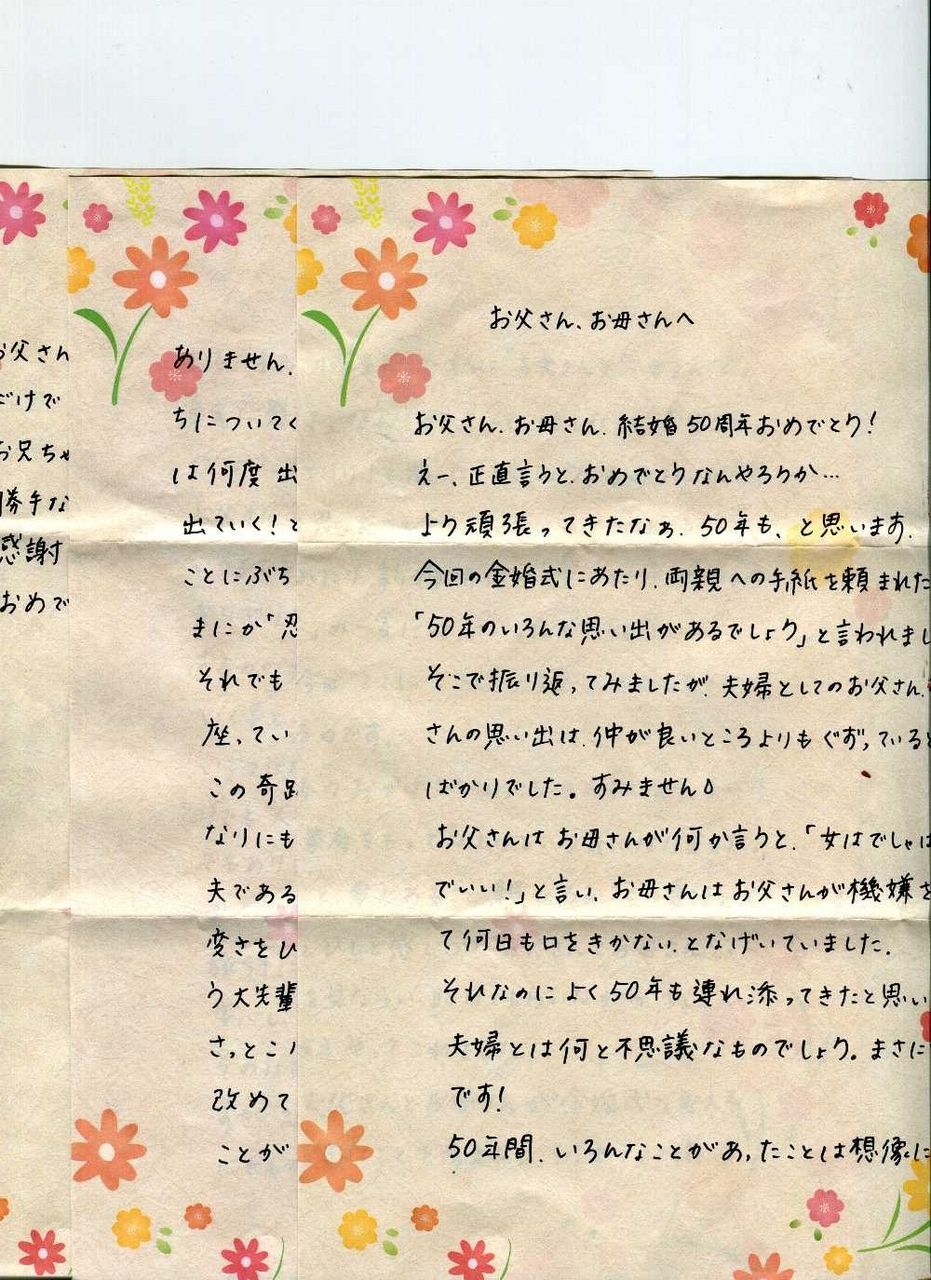 お父さん、お母さんへ
お父さん、お母さん、結婚50周年おめでとう!
えー、正直言うと、おめでとうなんやろうか…
よう頑張ってきたなぁ、50年も、と思います。
今回の金婚式にあたり、両親への手紙を頼まれた
「50年のいろんな思い出があるでしょう」と言われまし
そこで振り返ってみましたが、夫婦としてのお父さん、
さんの思い出は、仲が良いところよりもぐずっていると
ばかりでした。すみません
お父さんはお母さんが何か言うと、「女はでしゃば
でいい!」と言い、お母さんはお父さんが機嫌を
て何日も口をきかない、となげいていました。
それなのによく50年も連れ添ってきたと思い
夫婦とは何と不思議なものでしょう。まさに
です!
50年間、いろんなことがあったことは想像に
ありません。
ちについてく
は何度出
出ていく!と
ことにぶち
まにか「忍
それでも
座ってい
この奇跡
なりにも
夫である
変さをひ
う大先輩
さっとこ
改めて
ことが
お父さん
だけで
お兄ちゃ
勝手な
感謝
おめで